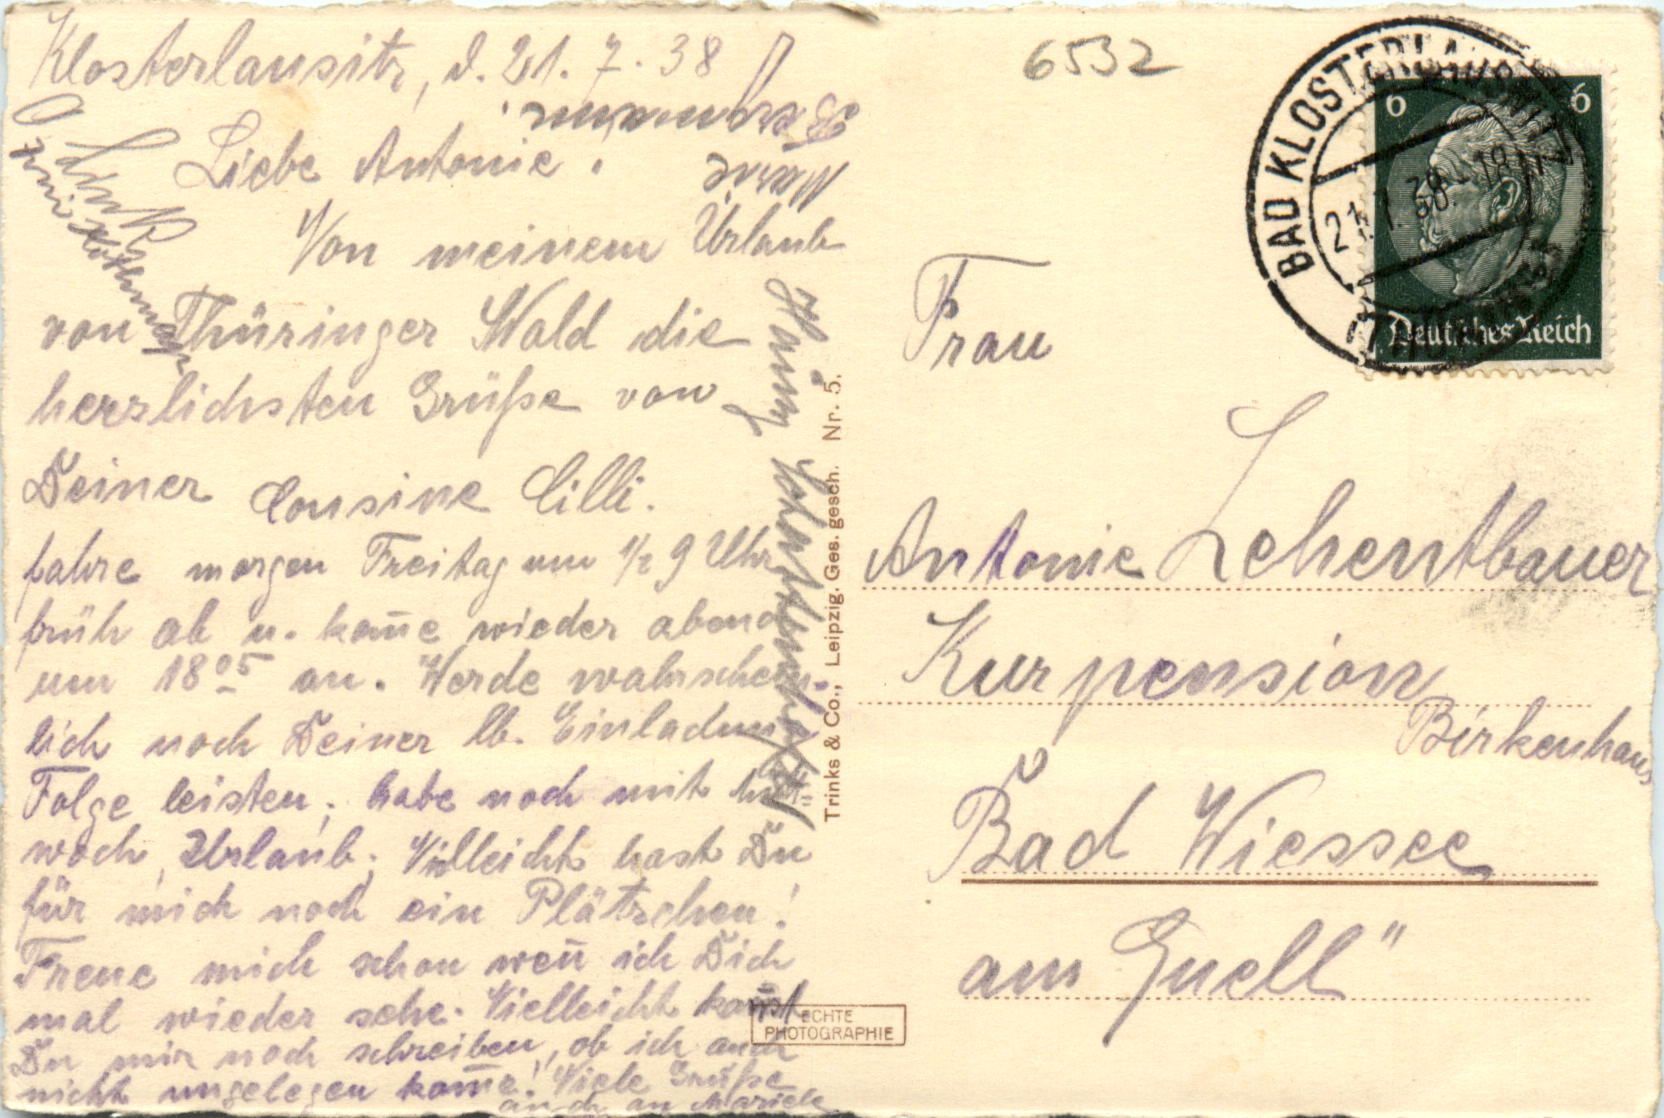 Klosterlausitz, d. 21. 7. 38
Liebe Antonie!
Von meinem Urlaub
von Thüringer Wald die
herzlichsten Grüße von
Deiner Cousine Cilli.
fahre morgen Freitag um 1/2 9 Uhr
früh ab u. kom̅e wieder abend
um 18 05 an. Werde wahrschein-
lich noch Deiner lb. Einladung
Folge leisten, habe noch mit
woch Urlaub. Vielleicht hast Du
für mich noch ein Plätzchen!
Freue mich schon wen̅ ich Dich
mal wieder sehe. Vielleicht kan̅st
Du mir noch schreiben, ob ich auch
nicht ungelegen kom̅e! Viele Grüße
auch an Mariele
Marie
Bergmann.
6532
BAD KLOSTERLAUSNITZ
21.7.38.-18
(THÜRINGEN)
6 6
Deutsches Reich
Frau
Antonie Lehentbauer
Kurpension
Birkenhaus
Bad Wiessee
am Quell"
Trinks & Co., Leipzig. Ges. gesch. Nr. 5.
ECHTE
PHOTOGRAPHIE